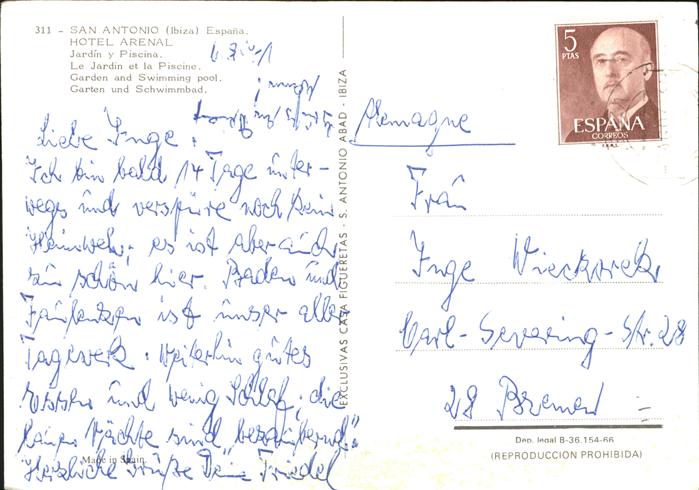 311 – SAN ANTONIO (Ibiza) España.
HOTEL ARENAL
Jardín y Piscina.
Le Jardin et la Piscine.
Garden and Swimming pool.
Garten und Schwimmbad.
Liebe Inge,
Ich bin bald 14 Tage unter-
wegs und verspüre noch kein
Heimweh; es ist aber auch
zu schön hier. Baden und
Faulenzen ist unser aller
Tagewerk. Weiterhin gutes
Essen und wenig Schlaf; die
lauen Nächte sind bezaubernd.
Herzliche Grüße Deine Friedel
Made in Spain
EXCLUSIVAS CASA FIGUERETAS - S. ANTONIO ABAD - IBIZA
5
PTAS
ESPAÑA
CORREOS
Alemagne
Frau
Inge Wieckorek
Carl-Severing-Str. 28
28 Bremen
Dep. legal B-36.154-66
(REPRODUCCION PROHIBIDA)